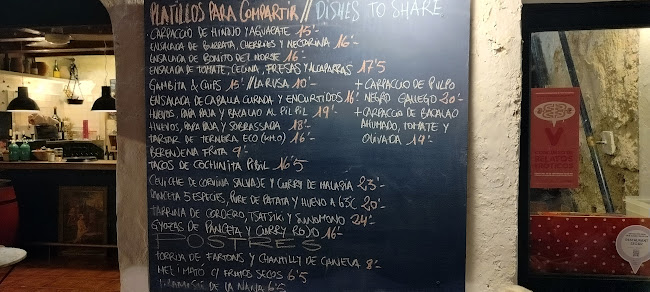 PLATILLOS PARA COMPARTIR // DISHES TO SHARE
CARPACCIO DE HINOJO Y AGUACATE 15'-
ENSALADA DE BURRATA, CHERRIES Y NECTARINA 16'-
ENSALADA DE BONITO DEL NORTE 16-
ENSALADA DE TOMATE, CECINA, FRESAS Y ALCAPARRAS 17'5
GAMBITA & CHIPS 15' // LA RUSA 10'-
ENSALADA DE CABALLA CURADA Y ENCURTIDOS 16'
HUEVOS, PAPA PAJA Y BACALAO AL PIL PIL 19'-
HUEVOS, PAPA PAJA Y SOBRASSADA 18'-
TARTAR DE TERNERA ECO (KM0) 16'-
BERENJENA FRITA 9'-
TACOS DE COCHINITA PIBIL 16'5
CEVICHE DE CORVINA SALVAJE Y CURRY DE MALASIA 23'-
PANCETA 5 ESPECIES, PURE DE PATATA Y HUEVO A 63C 20'-
TERRINA DE CORDERO, TSATSIKI Y SUNOMONO 24'-
GYOZAS DE PANCETA Y CURRY ROJO 16'-
POSTRES
TORRIJA DE FARTONS Y CHANTILLY DE CANELA 8'-
MEL I MATO C/ FRUTOS SECOS 6'5
DE LA NANA 6'5
+ CARPACCIO DE PULPO
NEGRO GALLEGO 20'-
+ CARPACCIO DE BACALAO
AHUMADO, TOMATE Y
OLIVADA 19'-